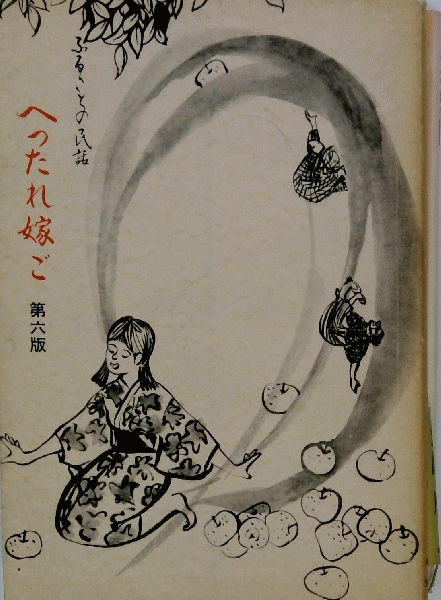 ふるさとの民話
へったれ嫁ご
第六版